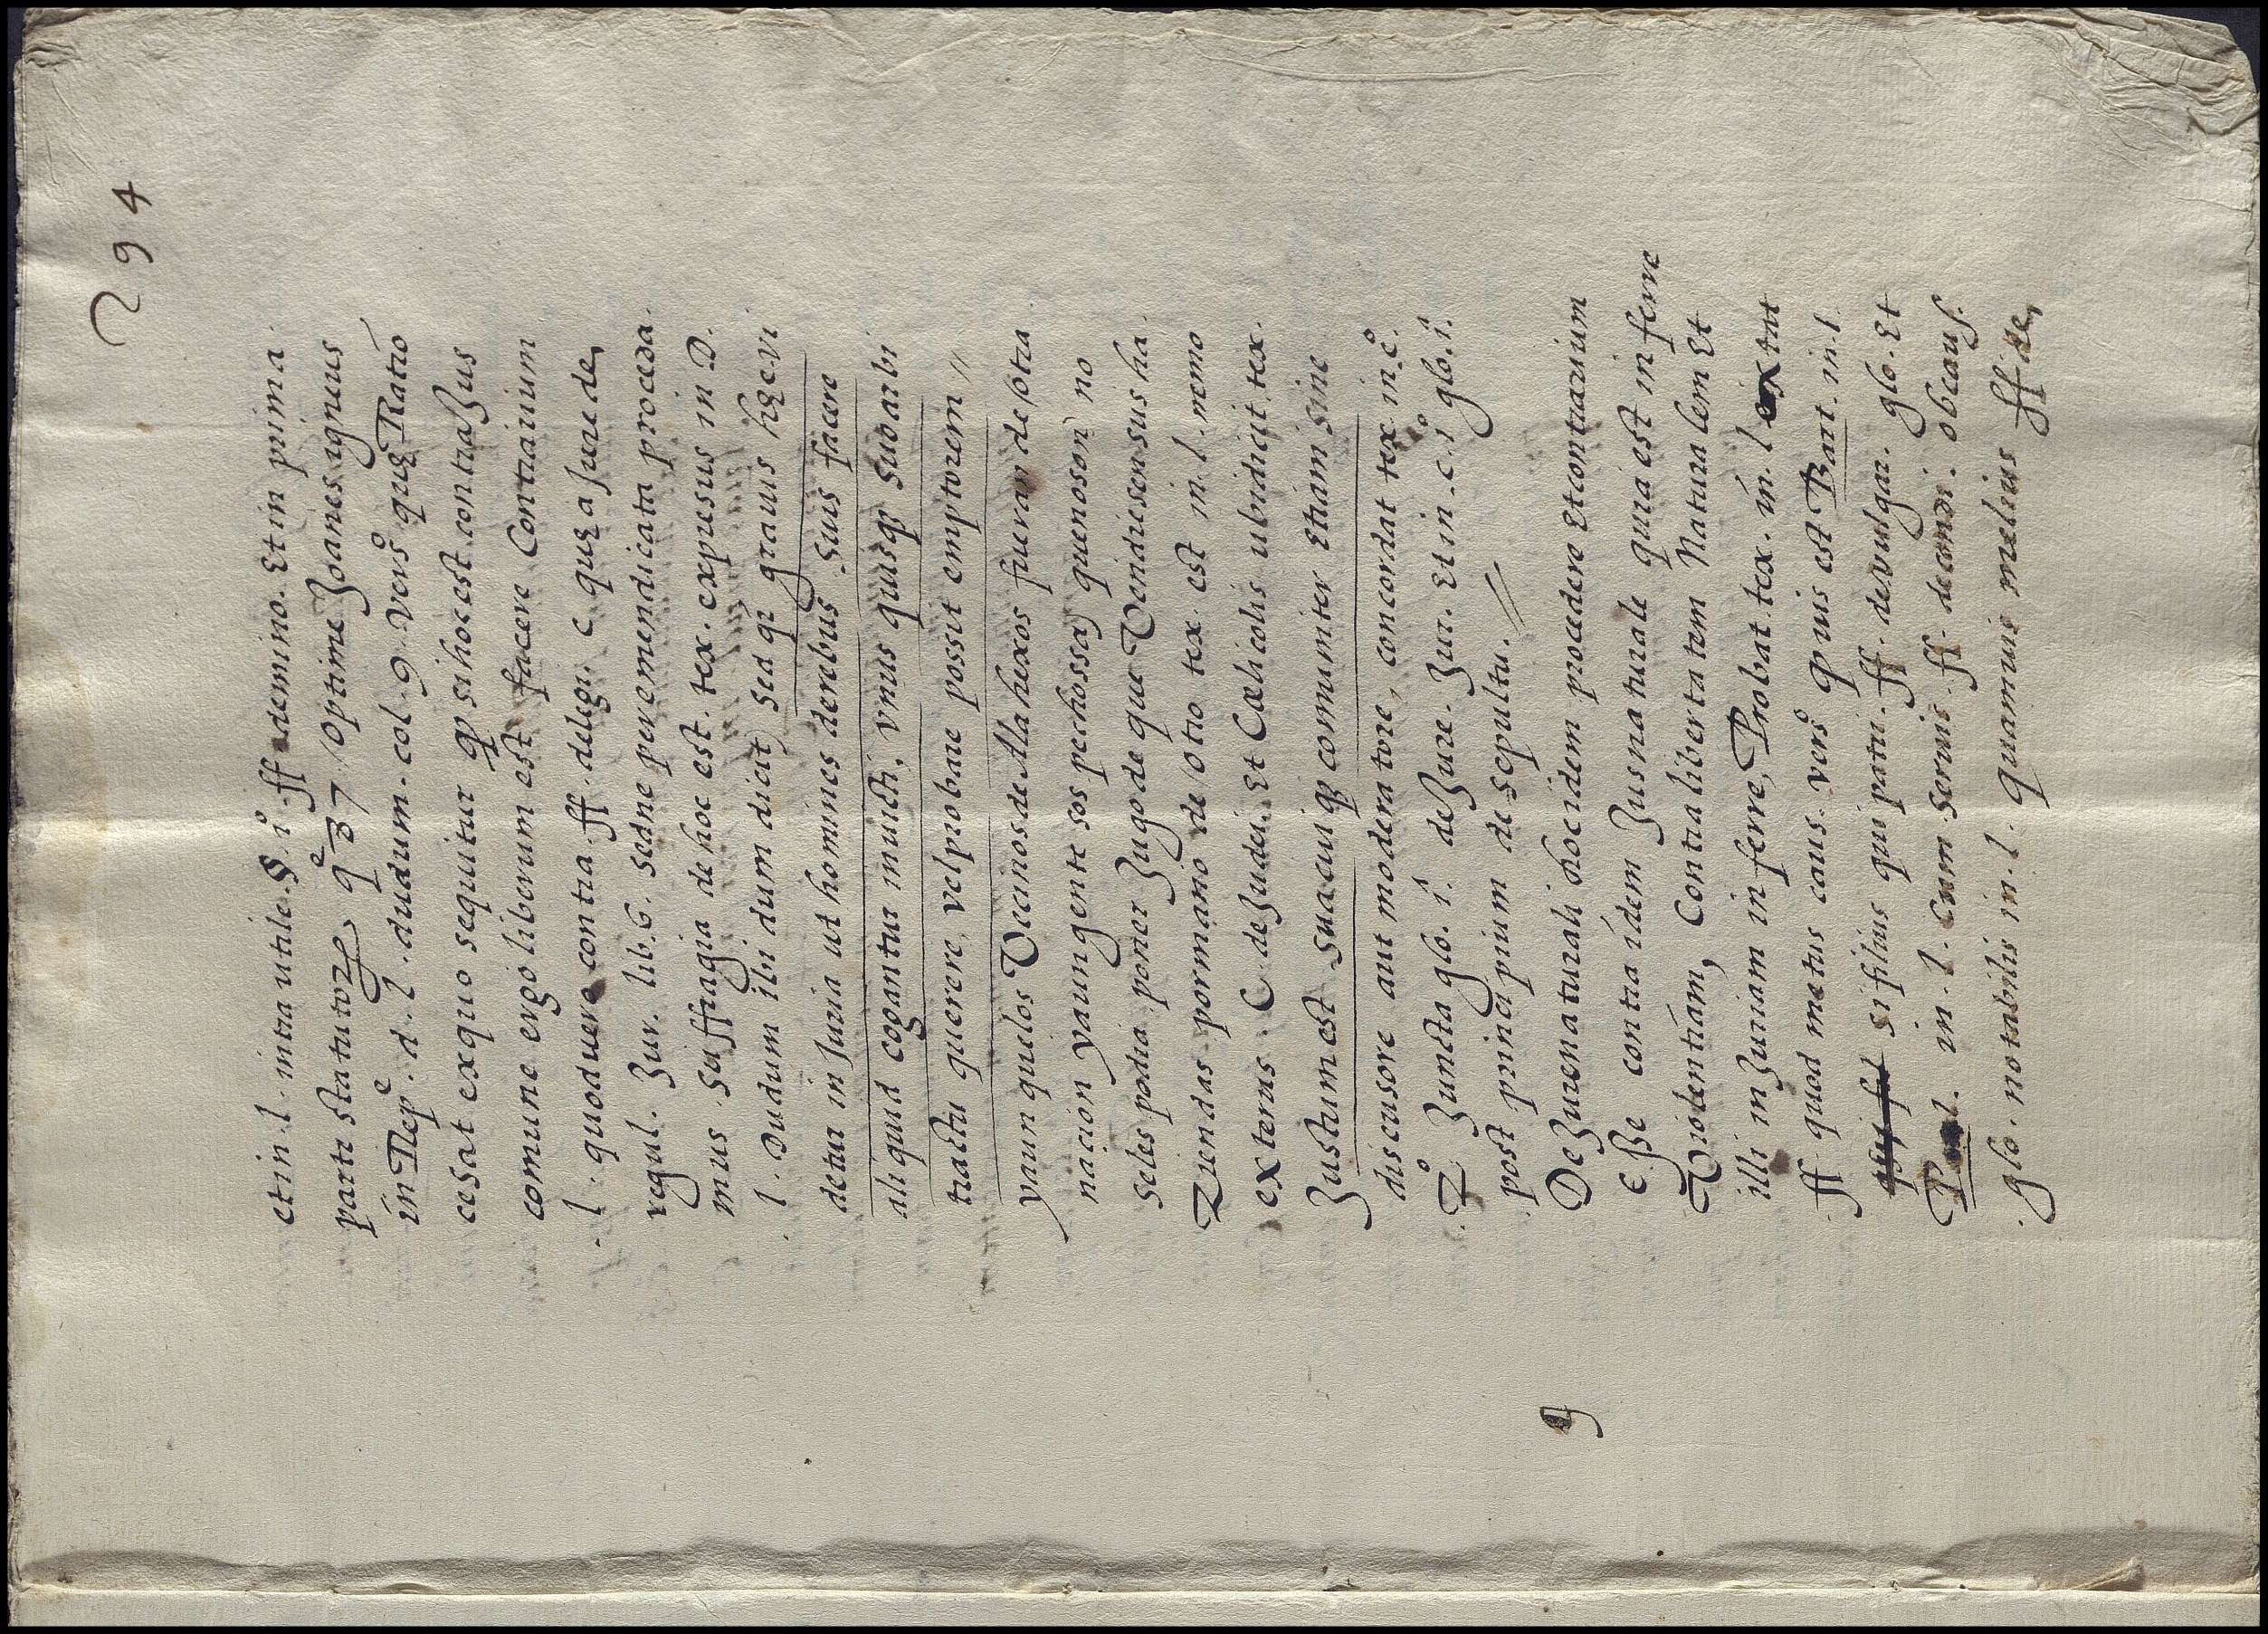 294
et in .l. intra utile. §. i° ff de mino. Et in prima
parte statutoꝝ qᵉ 37 optime Joanes igneus
in Repᵉ. d. l. dudum. col. 9 versº quę Ratio
cesat ex quo sequitur qp si hoc est contra Jus
comune ergo liberum est facere Contrarium
.l. quod vero contra. ff. delegi. c quę a Jure de
regul. Jur. lib. 6. sed ne pure mendicata proceda.
mus suffragia de hoc est. tex. expresus in D.
.l. Dudum ibi dum dicit) sed qz grauis hęc vi
detur in Juria ut homines de rebus suis facere
aliquid cogantur inuicti, vnus quisqp suo arbi
tractu querere, vel probare possit emptorem //
yaun que los Vecinos de Alahexos fueran de otra
nacion yaun gente sospechossa) que no son) no
seles podia poner Jugo de que Vendiesen sus ha.
Ziendas por mano de otro tex est in .l. nemo
exterus C de Judei. Et Cælicolis ubi dicit tex.
Justum est sua cuiqp comuniter Etiam sine
discusore aut moderatore, concordat tex in c°.
.2° Juncta glo. i. de Jure. Jur. Et in .c. i° glo. i.
post principium de sepultu. //
9
De Jure naturali hoc idem procedere Et contrarium
eße contra idem Jus naturale quia est inferre
Violentiam, Contra libertatem Naturalem Et
illi in Juriam in ferre, Probat tex. in. l extat
.ff quod metus caus. versº qp uis est Bart. in .l.
si filius qui patri. ff. de vulgar. glo. Et
Paul. in .l. Cum seruis. ff. de condi. ob caus.
.glo. notabilis in .l. quamuis melius ff de,